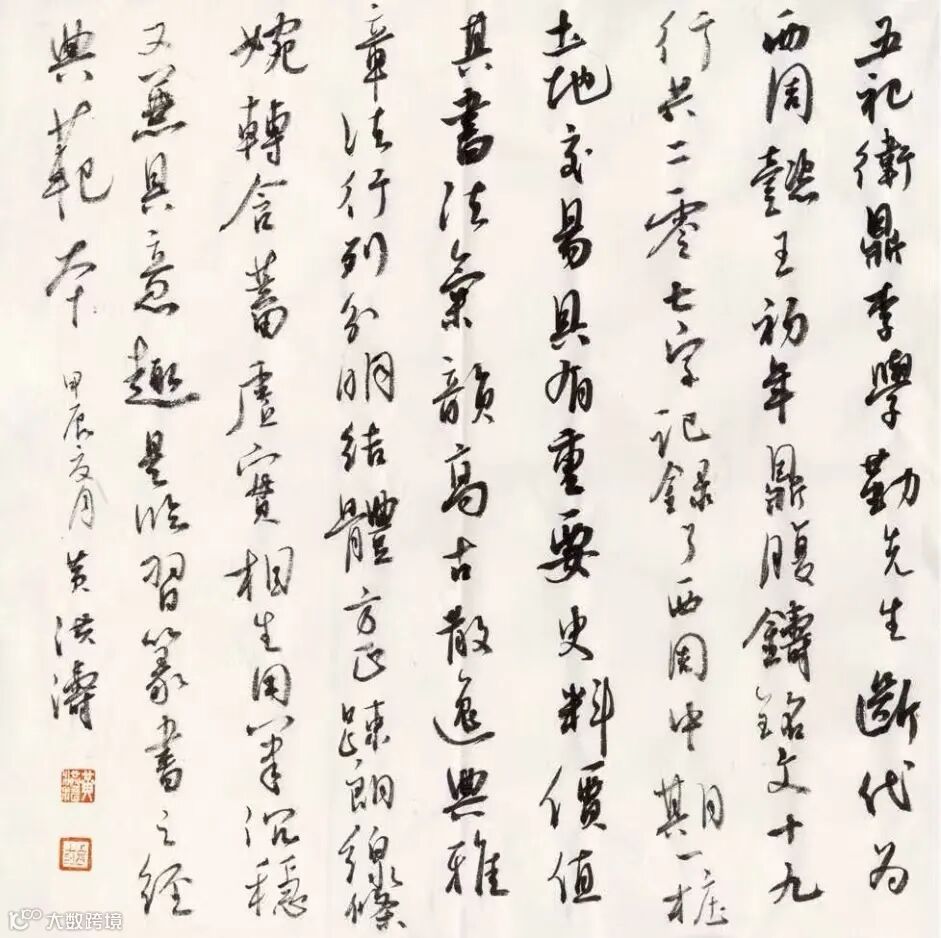 五祀衛鼎李學勤先生斷代為
西周懿王初年鼎腹鑄銘文十九
行共二零七字記錄了西周中期一樁
土地交易具有重要史料價值
其書法氣韻高古散逸典雅
章法行列分明結體方正疎朗線條
婉轉含蓄虛實相生用筆沉穩
又兼具意趣是臨習篆書之經
典範本 甲辰夏月 黃洪濤
大数跨境